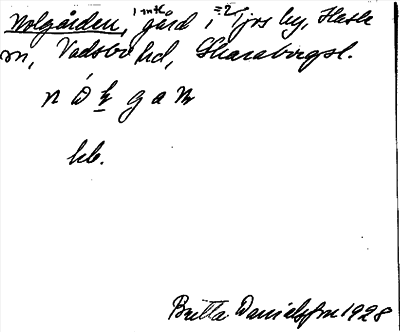 Nolgården, 1 mtl, gård i =2= Tjos by, Hasle
sn, Vadsbo hd, Skarabergsl.
n ó k g a n
kb.
Britta Danielsson 1928